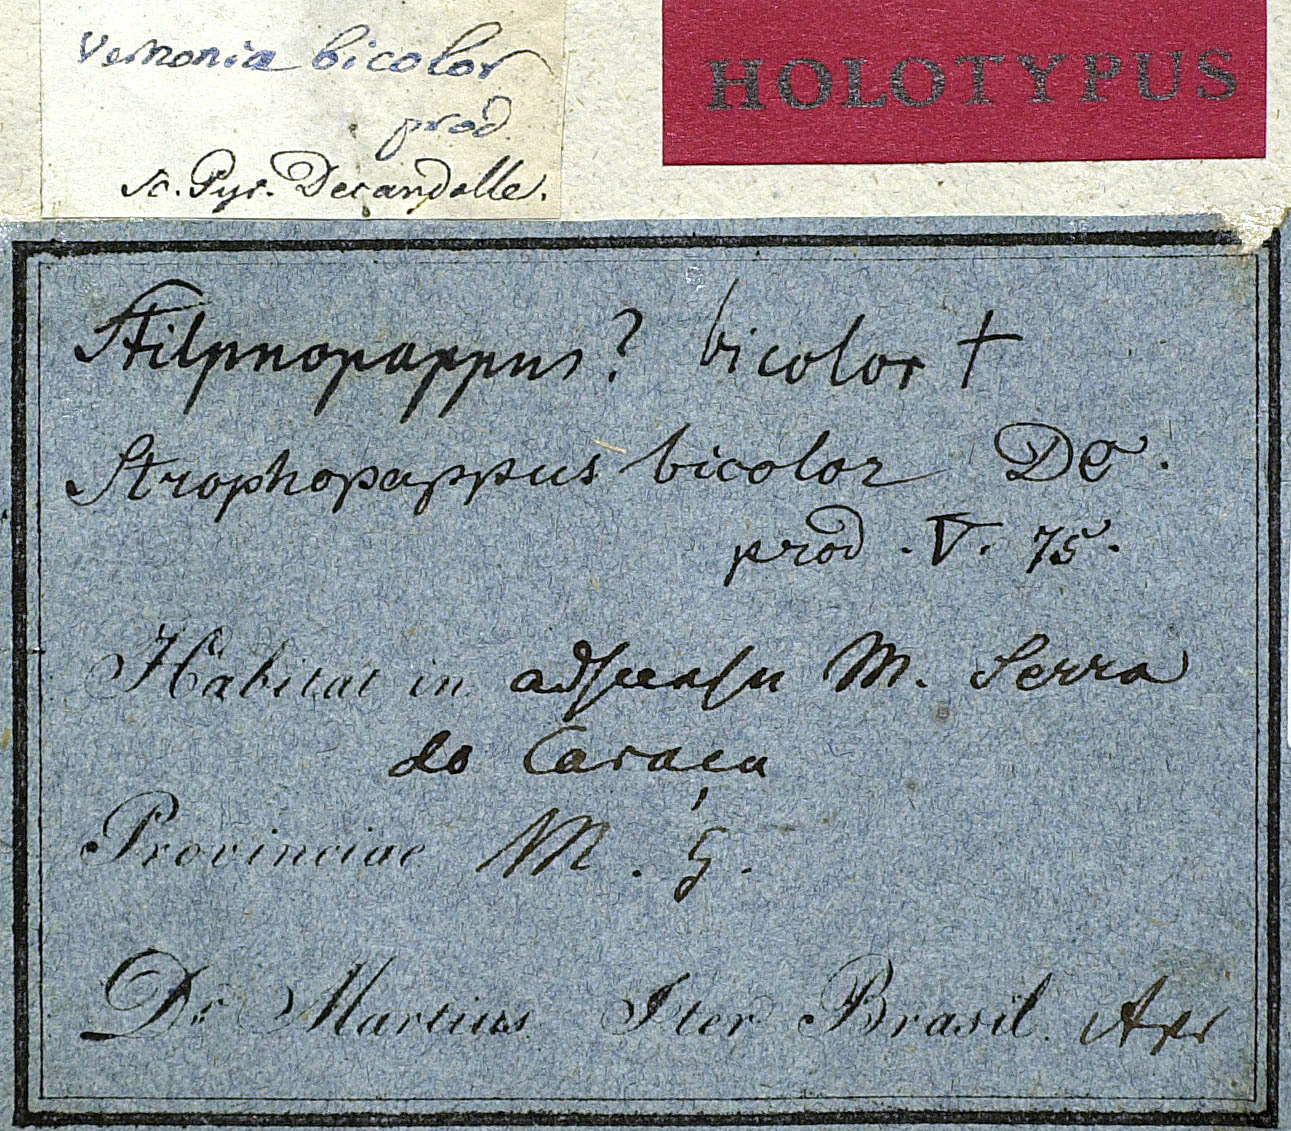 Vernonia bicolor
prod.
sc. Pyr. Decandolle.
HOLOTYPUS
Stilpnopappus? bicolor †
Strophopappus bicolor DC.
prod. V. 75.
Habitat in adscensu M. Serra
do Caraça
Provinciae M. G.
Dr. Martius Iter Brasil. Apr